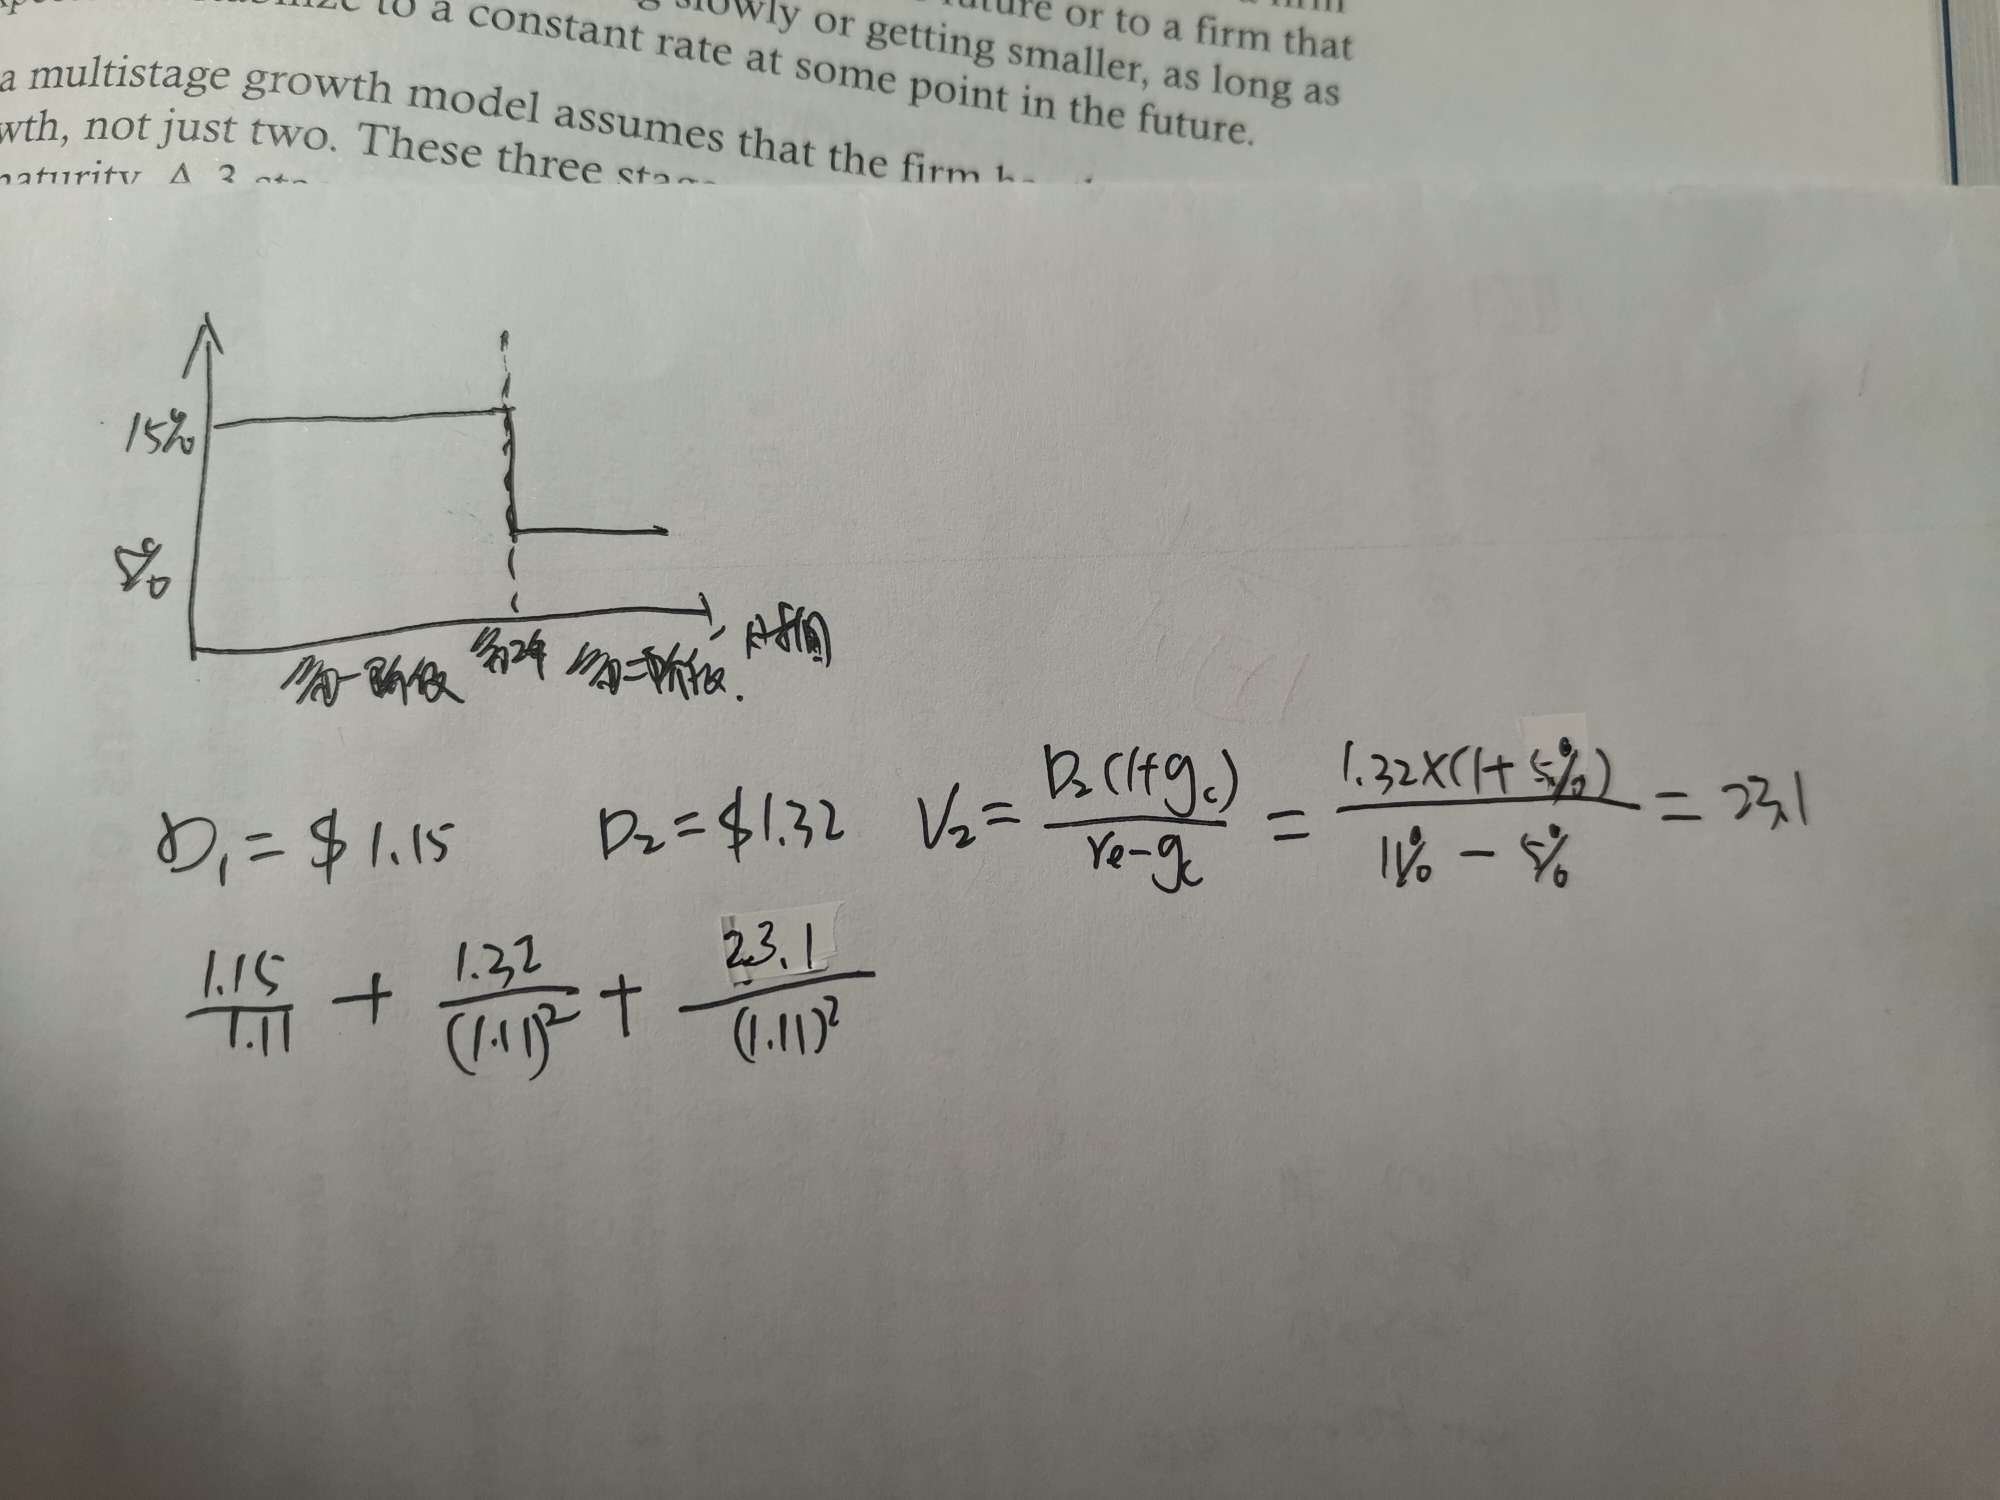 slowly or getting smaller, as long as
to a constant rate at some point in the future.
future or to a firm that
a multistage growth model assumes that the firm
wth, not just two. These three
maturity. A 3
15%
5%
第一阶段 第2年 第二阶段. 时间
D₁ = $1.15 D₂ = $1.32 V₂ = D₂(1+g_c) / (r_e - g_c) = 1.32×(1+5%) / (11% - 5%) = 23.1
1.15/1.11 + 1.32/(1.11)² + 23.1/(1.11)²